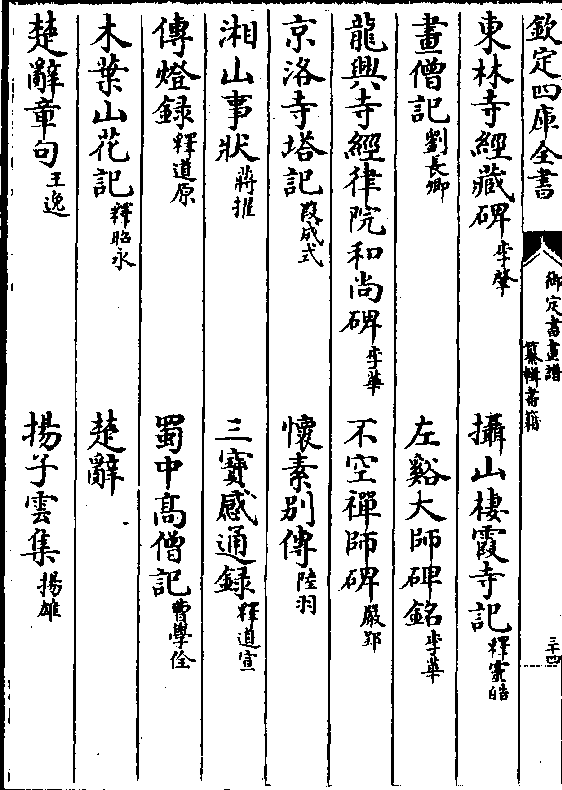 欽定四庫全書
御定書畫譜
纂輯書籍
三十四
東林寺經藏碑 李肇
攝山棲霞寺記 釋靈皓
畫僧記 劉長卿
左谿大師碑銘 李華
龍興寺經律院和尚碑 李華
不空禪師碑 嚴郢
京洛寺塔記 段成式
懷素别傳 陸羽
湘山事狀 蔣擢
三寶感通録 釋道宣
傳燈録 釋道原
蜀中高僧記 曹學佺
木葉山花記 釋昭永
楚辭
楚辭章句 王逸
揚子雲集 揚雄